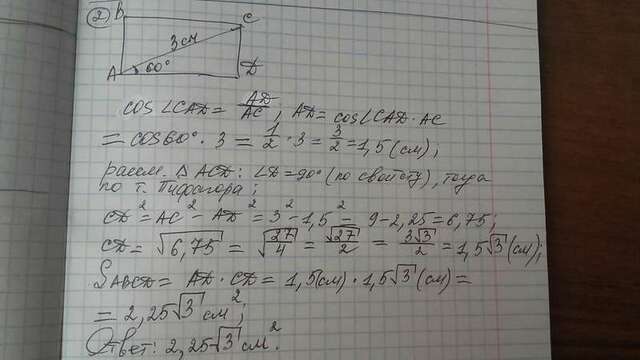 2) B C
3 см
A 60° D
cos∠CAD = AD/AC; AD = cos∠CAD · AC
= cos60° · 3 = 1/2 · 3 = 3/2 = 1,5 (см);
рассм. Δ ACD: ∠D = 90° (по свойству), тогда
по т. Пифагора;
CD² = AC² - AD² = 3² - 1,5² = 9 - 2,25 = 6,75;
CD = √6,75 = √27/4 = √27/2 = 3√3/2 = 1,5√3 (см);
SABCD = AD · CD = 1,5(см) · 1,5√3 (см) =
= 2,25√3 см²;
Ответ: 2,25√3 см².